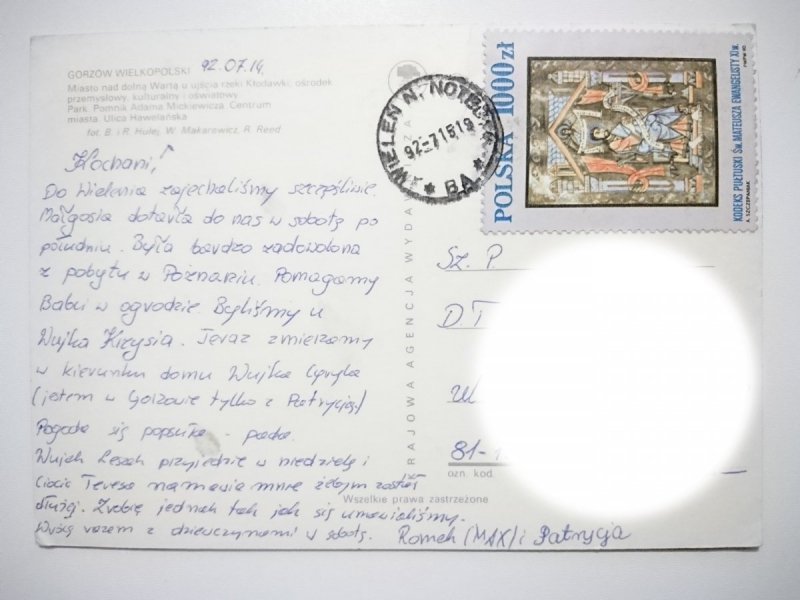 GORZÓW WIELKOPOLSKI 92.07.14.
Miasto nad dolną Wartą u ujścia rzeki Kłodawki, ośrodek
przemysłowy, kulturalny i oświatowy
Park. Pomnik Adama Mickiewicza. Centrum
miasta. Ulica Hawelańska
fot. B. i R. Hulej, W. Makarewicz, R. Reed
Kochani!
Do Wielenia zajechaliśmy szczęśliwie.
Małgosia dotarła do nas w sobotę po
południu. Była bardzo zadowolona
z pobytu w Poznaniu. Pomagamy
Babci w ogrodzie. Byliśmy u
Wujka Krzysia. Teraz zmierzamy
w kierunku domu Wujka
(jestem w Gorzowie tylko z Patrycją)
Pogoda się popsuła - pada.
Wujek Leszek przyjedzie w niedzielę i
ciocia Teresa namawia mnie żebym został
dłużej. Zrobię jednak tak jak się umawialiśmy.
razem z dziewczynami w sobotę. Romek (MAX) i Patrycja
KRAJOWA AGENCJA WYDA
ZA
Wszelkie prawa zastrzeżone
WIELEŃ N. NOTECIĄ
92-7-15 19
* BA *
POLSKA 1000 zł
KODEKS PUŁTUSKI ŚW. MATEUSZA EWANGELISTY XI w.
A. SZCZEPANIAK
Sz. P.
D.T
Ul
81-1
ozn. kod.